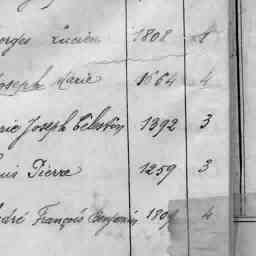 orges Lucien 1808 8
Joseph Marie 1664 4
rie Joseph Célestin 1392 3
uis Pierre 1259 3
ndré François Benjamin 1809 4